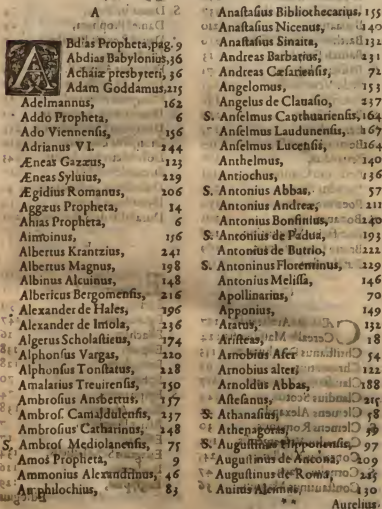 A
Bdias Propheta, pag. 9
Abdias Babylonius, 36
Achaiæ presbyteri, 36
Adam Goddamus, 215
Adelmannus, 162
Addo Propheta, 6
Ado Viennensis, 156
Adrianus VI. 244
Æneas Gazæus, 123
Æneas Syluius, 229
Ægidius Romanus, 206
Aggæus Propheta, 14
Ahias Propheta, 6
Aimoinus, 156
Albertus Krantzius, 241
Albertus Magnus, 198
Albinus Alcuinus, 148
Albericus Bergomensis, 216
Alexander de Hales, 196
Alexander de Imola, 236
Algerus Scholasticus, 174
Alphonsus Vargas, 220
Alphonsus Tonstatus, 228
Amalarius Treuirensis, 150
Ambrosius Ansbertus, 157
Ambros. Camaldulensis, 237
Ambrosius Catharinus, 248
S. Ambros. Mediolanensis, 75
Amos Propheta, 9
Ammonius Alexandrinus, 46
Amphilochius, 83
Anastasius Bibliothecarius, 155
Anastasius Nicenus, 140
Anastasius Sinaita, 132
Andreas Barbatius, 231
Andreas Cæsariensis, 72
Angelomus, 153
Angelus de Clauasio, 237
S. Anselmus Canthuariensis, 164
Anselmus Laudunensis, 167
Anselmus Lucensis, 164
Anthelmus, 140
Antiochus, 136
S. Antonius Abbas, 57
Antonius Andreæ, 211
Antonius Bonfinius, 240
S. Antonius de Padua, 193
Antonius de Butrio, 222
S. Antoninus Florentinus, 229
Antonius Melissa, 146
Apollinarius, 70
Apponius, 149
Aratus, 132
Aristeas, 18
Arnobius Afer 54
Arnobius alter, 122
Arnoldus Abbas, 188
Astesanus, 215
S. Athanasius, 58
Athenagoras,
S. Augustinus Hipponensis, 97
Augustinus de Ancona, 209
Augustinus de Roma, 225
Auitus Alcimus, 130
**
Aurelius